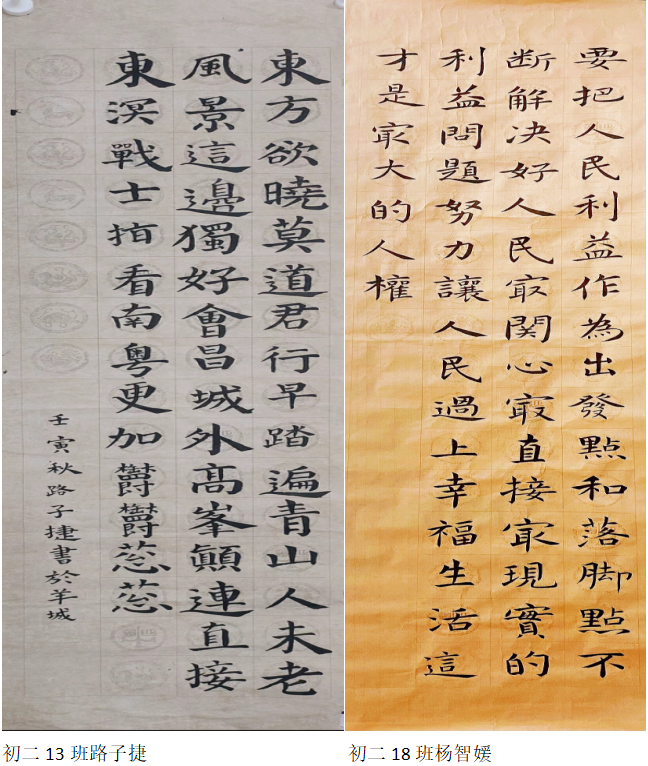 東方欲曉莫道君行早踏遍青山人未老
風景這邊獨好會昌城外髙峯顛連直接
東溟戰士指看南粤更加鬱鬱葱葱
壬寅秋路子捷書於羊城
要把人民利益作為出發點和落脚點不
断解决好人民最関心最直接最現實的
利益問題努力讓人民過上幸福生活這
才是最大的人權
初二 13 班路子捷
初二 18 班杨智媛